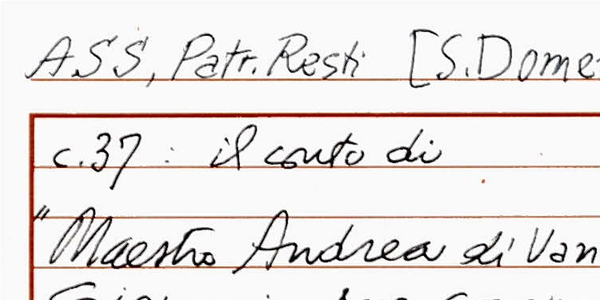 ASS, Patr. Resti [S. Dome
c. 37 : il conto di
"Maestro Andrea di Van